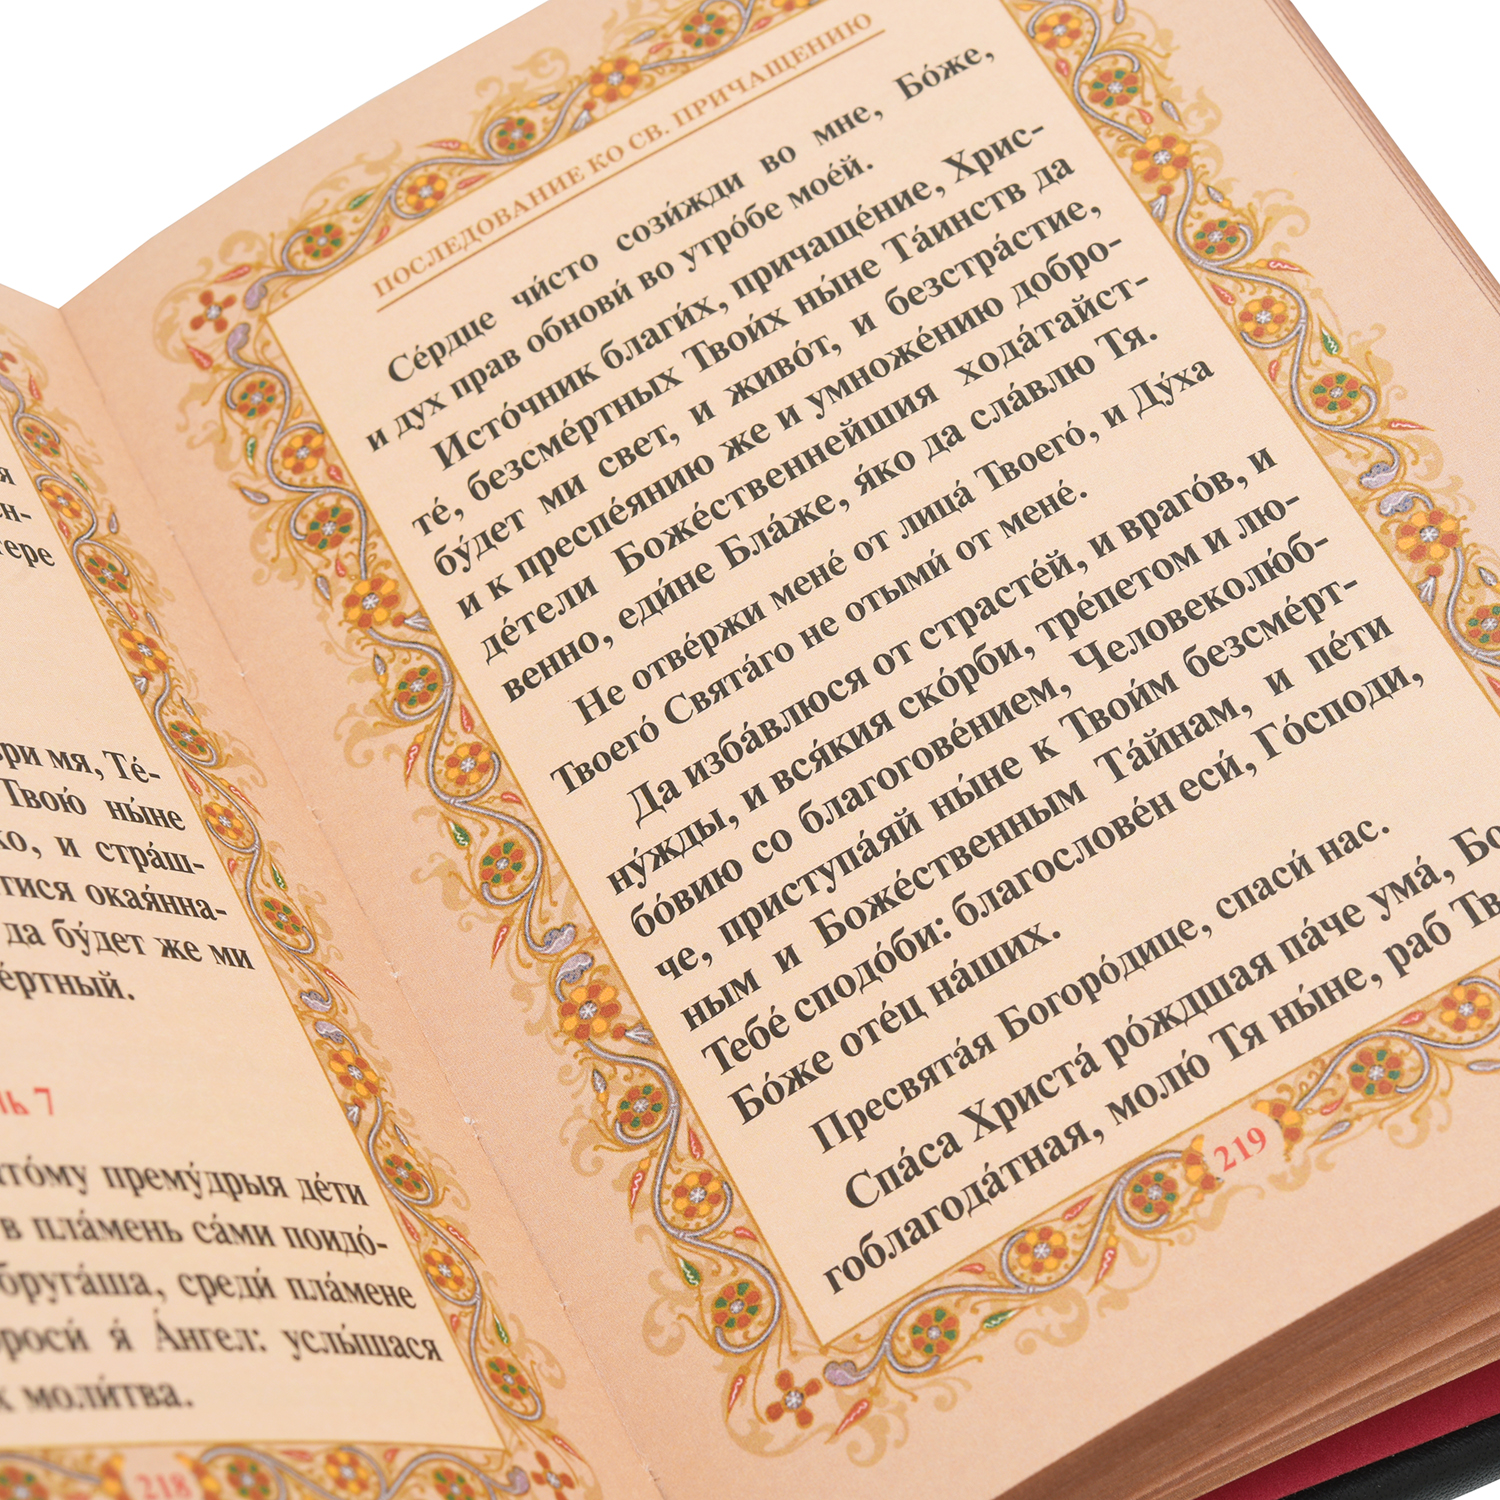 я
ен-
тере
ври мя, Те́-
Твою́ ны́не
ко, и стра́ш-
тися окая́нна-
да бу́дет же ми
е́ртный.
нь 7
ято́му прему́дрыя де́ти
в пла́мень са́ми поидо́-
бруга́ша, среди́ пла́мене
роси́ я́ А́нгел: услы́шася
х моли́тва.
218
ПОСЛЕДОВАНИЕ КО СВ. ПРИЧАЩЕНИЮ
Се́рдце чи́сто сози́жди во мне, Бо́же,
и дух прав обнови́ во утро́бе мое́й.
Исто́чник благи́х, причаще́ние, Хрис-
те́, безсме́ртных Твои́х ны́не Та́инств да
бу́дет ми свет, и живо́т, и безстра́стие,
и к преспе́янию же и умноже́нию добро-
де́тели Боже́ственнейшия хода́тайст-
венно, еди́не Бла́же, я́ко да сла́влю Тя.
Не отве́ржи мене́ от лица́ Твоего́, и Ду́ха
Твоего́ Свята́го не отыми́ от мене́.
Да изба́влюся от страсте́й, и враго́в, и
ну́жды, и вся́кия ско́рби, тре́петом и лю-
бо́вию со благогове́нием, Человеколю́б-
че, приступа́яй ны́не к Твои́м безсме́рт-
ным и Боже́ственным Та́йнам, и пе́ти
Тебе́ сподо́би: благослове́н еси́, Го́споди,
Бо́же оте́ц на́ших.
Пресвята́я Богоро́дице, спаси́ нас.
Спа́са Христа́ ро́ждшая па́че ума́, Бо
гоблагода́тная, молю́ Тя ны́не, раб Тв
219